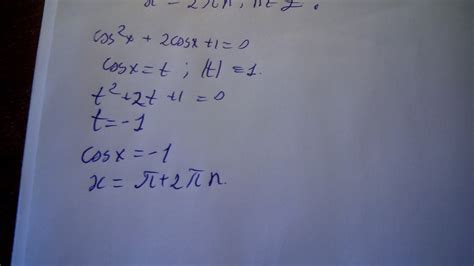 x = 2πn, n∈Z.
cos²x + 2cosx +1=0
cosx = t ; |t| ≤ 1.
t² + 2t +1 = 0
t = -1
cosx = -1
x = π + 2πn